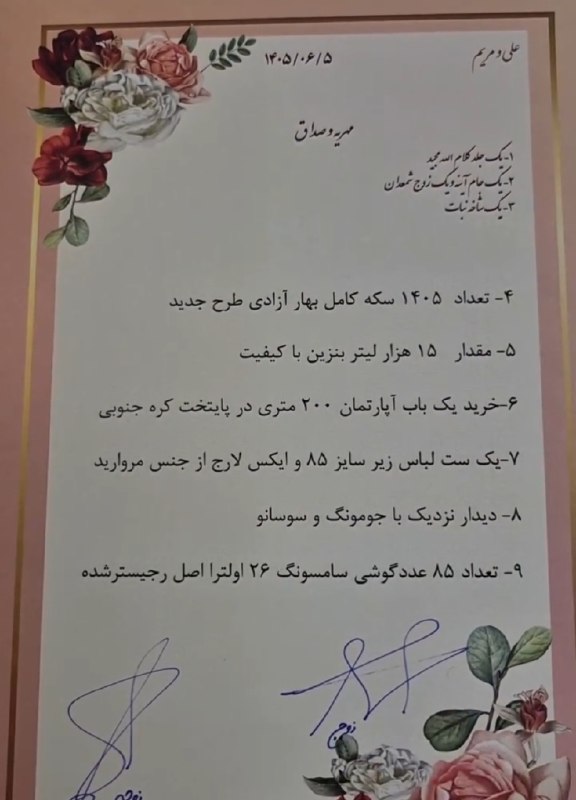 علی و مریم
۱۴۰۵/۰۶/۵
مهریه و صداق
۱-یک جلد کلام الله مجید
۲-یک جام آینه و یک زوج شمعدان
۳-یک شاخه نبات
۴- تعداد ۱۴۰۵ سکه کامل بهار آزادی طرح جدید
۵- مقدار ۱۵ هزار لیتر بنزین با کیفیت
۶-خرید یک باب آپارتمان ۲۰۰ متری در پایتخت کره جنوبی
۷-یک ست لباس زیر سایز ۸۵ و ایکس لارج از جنس مروارید
۸- دیدار نزدیک با جومونگ و سوسانو
۹- تعداد ۸۵ عددگوشی سامسونگ ۲۶ اولترا اصل رجیسترشده
زوج